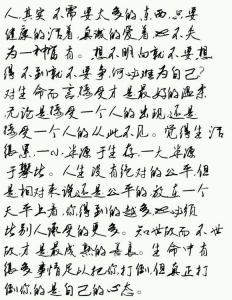 人,其实不需要太多的东西,只要
健康的活着,真诚的爱着,也不失
为一种富有。想不明白就不要想
得不到就不要,何必难为自己?
对生命而言接受才是最好的温柔
无论是接受一个人的出现,还是
接受一个人的从此不见。觉得生活
很累,一小半源于生存,一大半源
于攀比。人生没有绝对的公平但
是相对来说还是公平的,放在一个
天平上看,你得到的越多也必须
比别人承受的更多。知世故而不世
故才是最成熟的善良。生命中有
很多事情足以把你打倒,但真正打
倒你的是自己的心态。